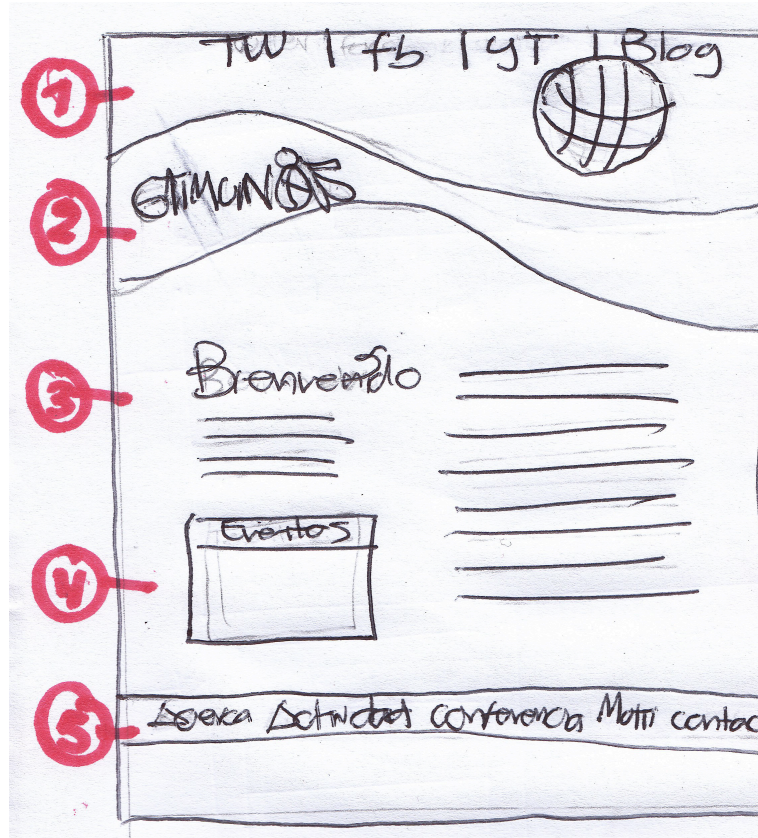 TW | fb | YT | Blog
1
2
3
Bienvenido
4
Eventos
5
Acerca Actividad conferencia Multi contac